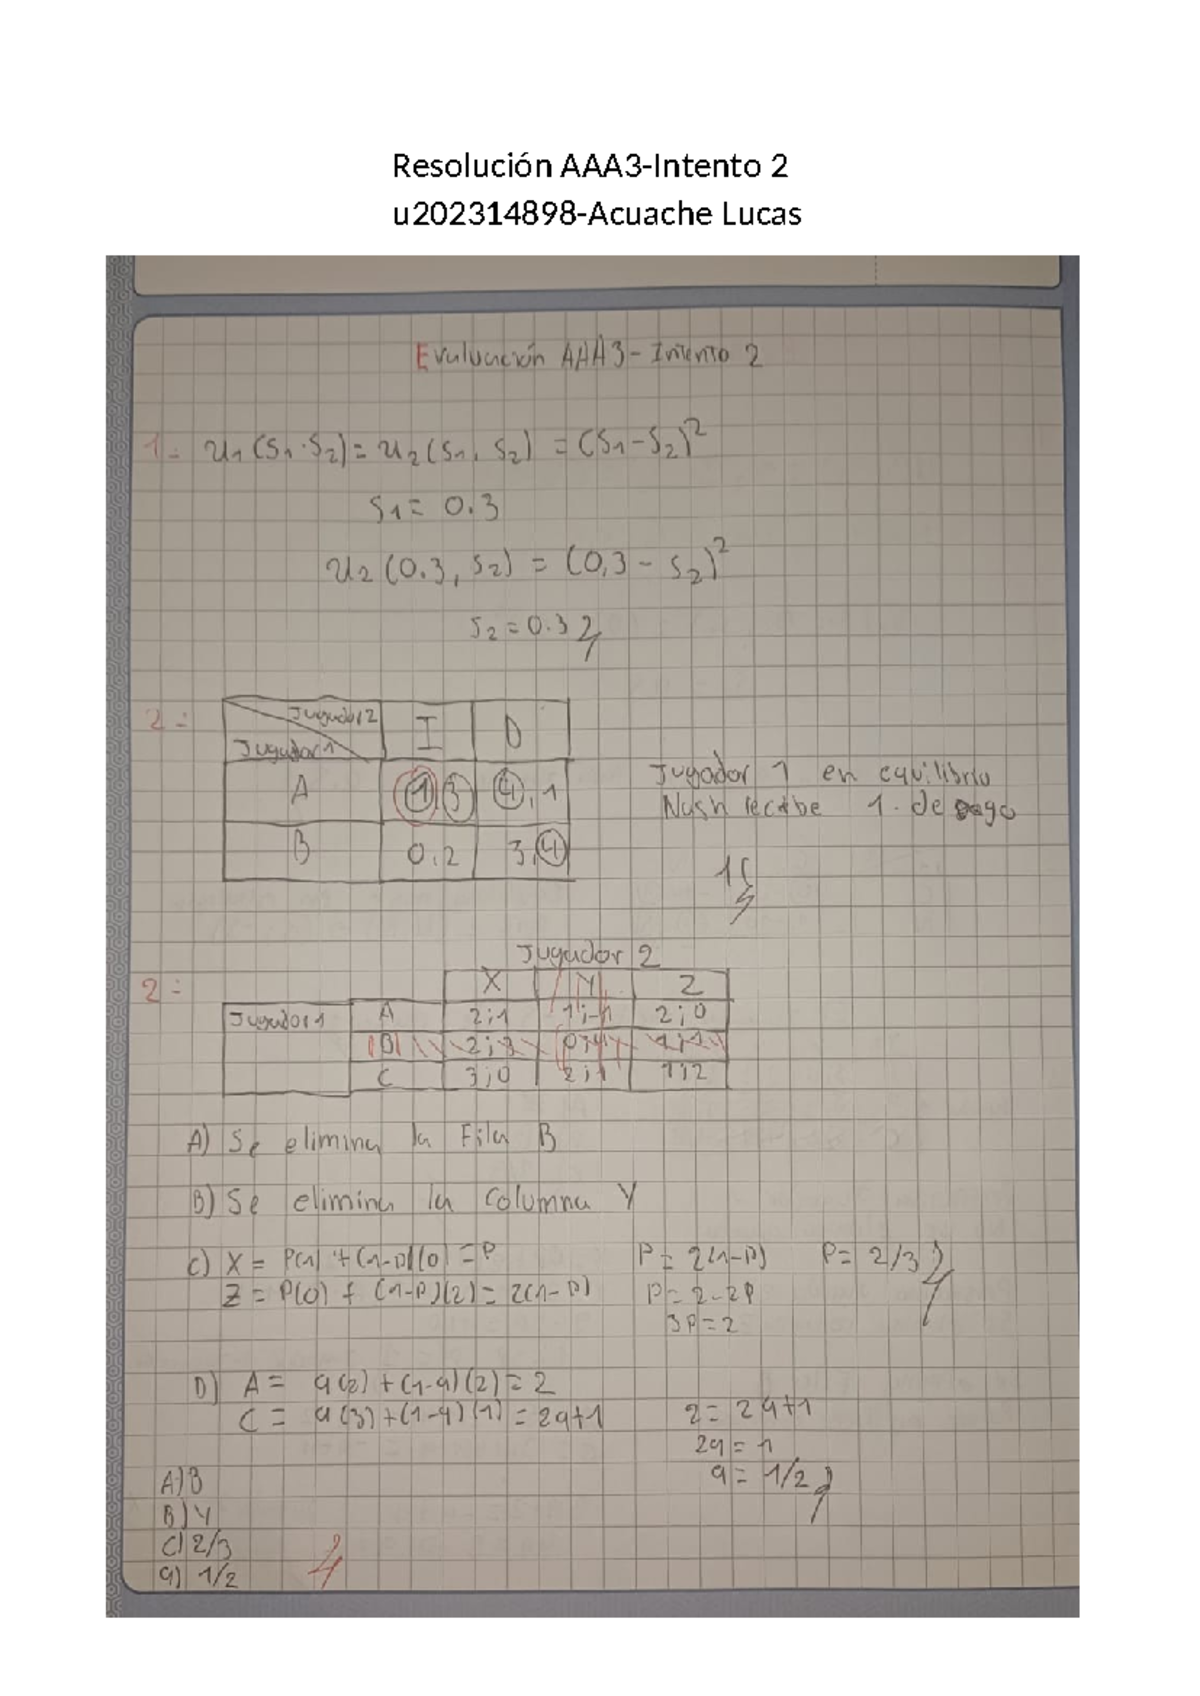 Resolución AAA3-Intento 2
u202314898-Acuache Lucas
Evaluación AAA3 - Intento 2
1- u1 (S1 · S2) = u2 (S1, S2) = (S1 - S2)²
S1 = 0.3
u2 (0.3, S2) = (0,3 - S2)²
S2 = 0.3
2=
Jugador 2 I D
Jugador 1
A 1, 3 4, 1
B 0.2 3, 4
Jugador 1 en equilibrio
Nash recibe 1. de pago
1
Jugador 2
2=
X Y Z
Jugador 1 A 2;1 1;-1 2;0
B 2;3 1;1
C 3;0 2;1 1;2
A) Se elimina la Fila B
B) Se elimina la columna Y
C) X = P(1) + (1-P)(0) = P
Z = P(0) + (1-P)(2) = 2(1-P)
P = 2(1-P)
P = 2-2P
3P = 2
P = 2/3
D) A = q(2) + (1-q)(2) = 2
C = q(3) + (1-q)(1) = 2q+1
2 = 2q+1
2q = 1
q = 1/2
A) B
B) Y
C) 2/3
q) 1/2